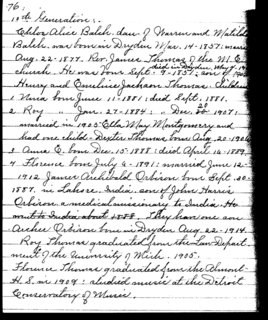 76.
10th Generation:-
Chloe Alice Balch, dau of Warren and Matilda
Balch, was born in Dryden Mar. 14-1857: married
Aug. 22-1877. Rev. James Thomas of the M. E.
died in Dryden, May 9. 19
church. He was born Sept. 9-1851: son of
Henry and Emeline Jackson Thomas. Children
1 born June 11-1881: died Sept. 1881.
2 Roy " Jan. 27-1884. " Dec. 20 1907:
married in 1905 Etta May Montgomery and
had one child: Dexter Thomas born Aug. 22-1906
3 Anna E. born Dec. 15-1888: died April 12-1889.
4 Florence born July 4-1891: married June 12-
1912 James Archibald Orbison born Sept. 30-
1887. in Lahore, India. son of John Harris
Orbison a medical missionary to India. He
went to India about 1888. They have one son
Archie Orbison born in Dryden Aug. 22-1914.
Roy Thomas graduated from the Law Depart-
ment of the University of Mich. 1905.
Florence Thomas graduated from the Almont
H. S. in 1909: studied music at the Detroit
Conservatory of Music.